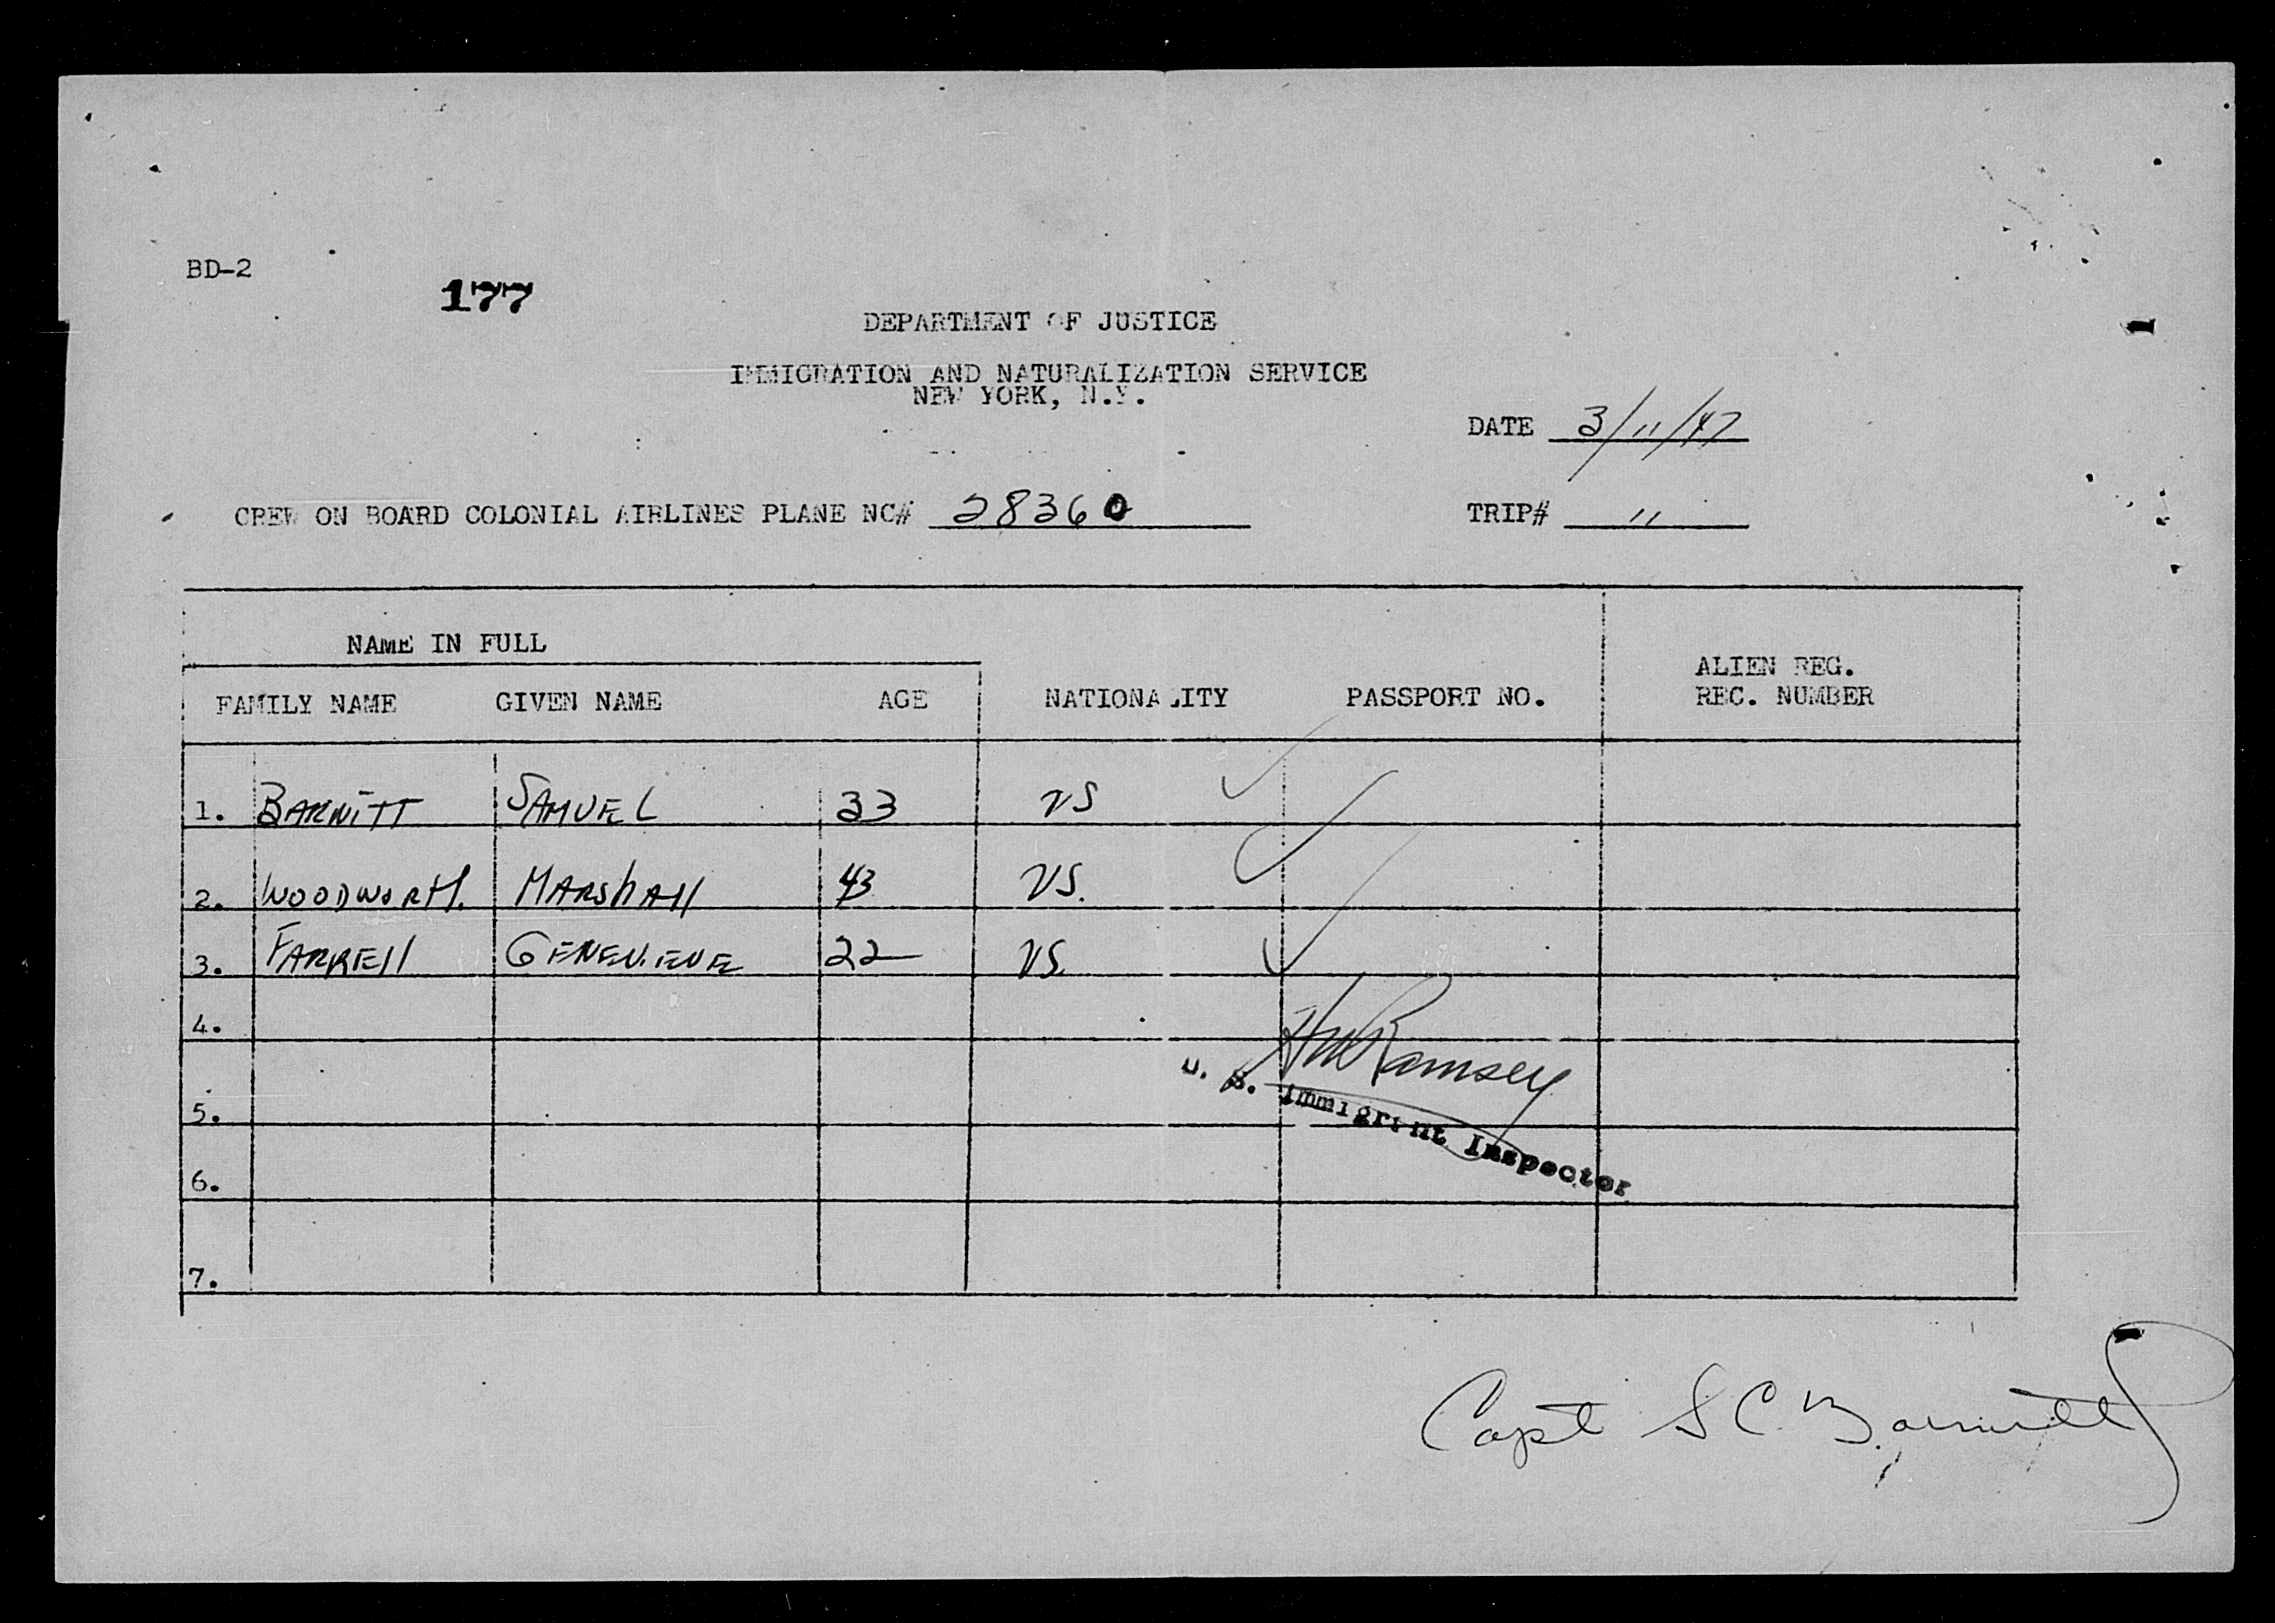 BD-2
177
DEPARTMENT OF JUSTICE
IMMIGRATION AND NATURALIZATION SERVICE
NEW YORK, N.Y.
DATE 3/11/47
CREW ON BOARD COLONIAL AIRLINES PLANE NC# 28360
TRIP# 11
NAME IN FULL
FAMILY NAME GIVEN NAME AGE NATIONALITY PASSPORT NO. ALIEN REG. REC. NUMBER
1. BARNITT SAMUEL 33 US
2. WOODWORTH. MARSHALL 43 US.
3. FARRELL GENEVIEVE 22 US.
4.
Ramsey
U. S. Immigrant Inspector
5.
6.
7.
Capt S C Barnitt